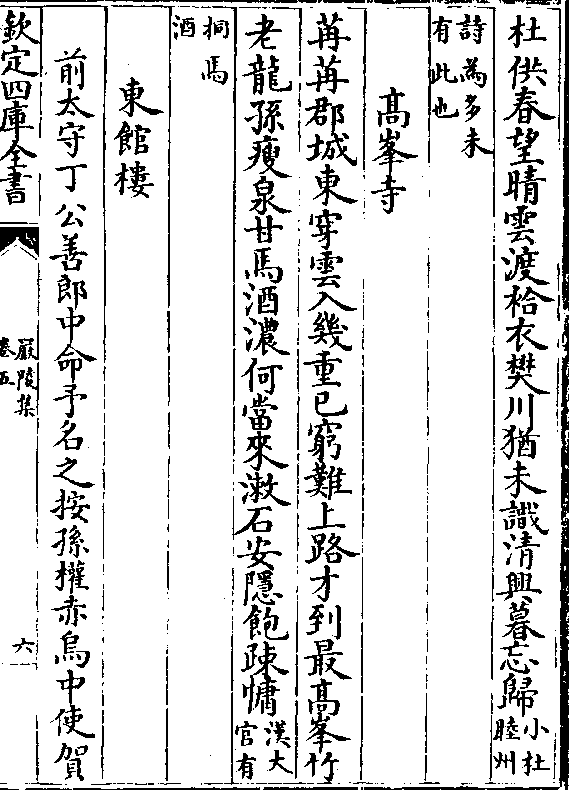 杜供春望晴雲渡袷衣樊川猶未識清興暮忘歸小杜睦州
詩為多未有此也
高峯寺
苒苒郡城東穿雲入幾重已窮難上路才到最高峯竹
老龍孫瘦泉甘馬酒濃何當來漱石安隱飽踈慵漢大官有
挏馬酒
東館樓
前太守丁公善郎中命予名之按孫權赤烏中使賀
欽定四庫全書
嚴陵集
卷五
六